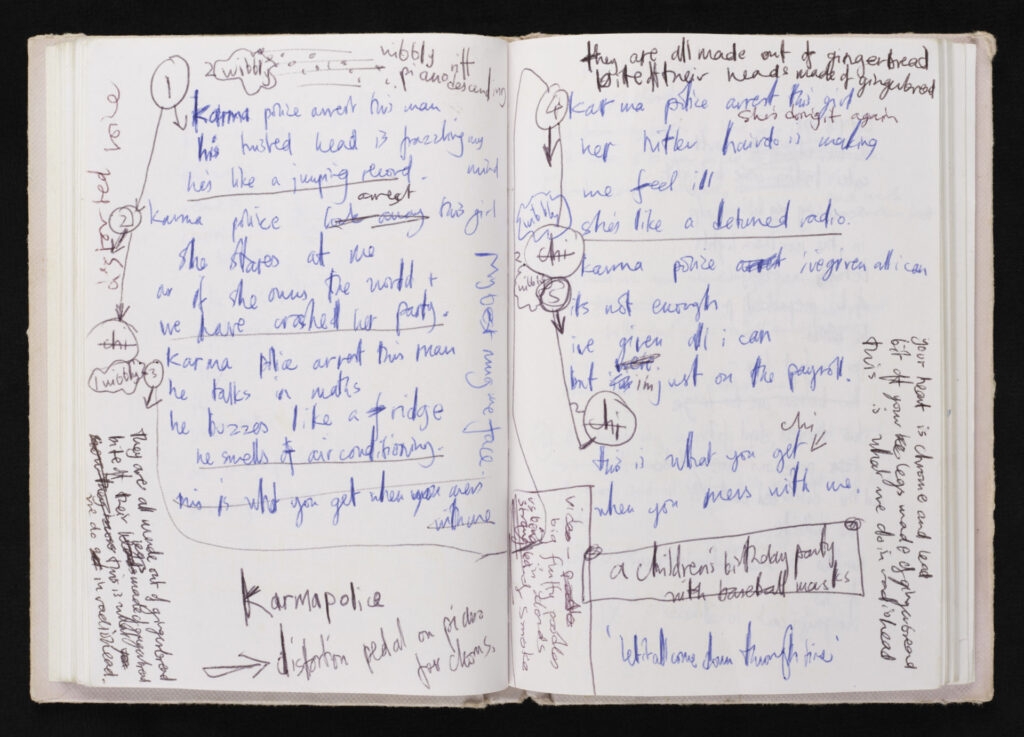 1
2 wibbly
nibbly riff
piano descending
Karma police arrest this man
his twisted head is frazzling my mind
hes like a jumping record.
2
karma police arrest this girl
she stares at me
as if she owns the world +
we have crashed her party.
1 nibbly
3
karma police arrest this man
he talks in maths
he buzzes like a fridge
he smells of air conditioning.
this is what you get when you mess
with me
they are all made out of gingerbread
bite off their
made of gingerbread
this is what
we do in radiohead.
Karmapolice
distortion pedal on piano
for chorus.
they are all made out of gingerbread
bite off their heads made of gingerbread
4
karma police arrest this girl
shes doing it again
her hitler hairdo is making
me feel ill
shes like a detuned radio.
wibbly
chi
2 nibbly
5
karma police arrest ive given all i can
its not enough
ive given all i can
but im just on the payroll.
chi
chi
this is what you get
when you mess with me.
your heart is chrome and lead
bit off your legs made of gingerbread
this is what we do in radiohead
video
big fluffy poodles
in clouds
smoke
a children's birthday party
with baseball masks
'let it all come down through fire'